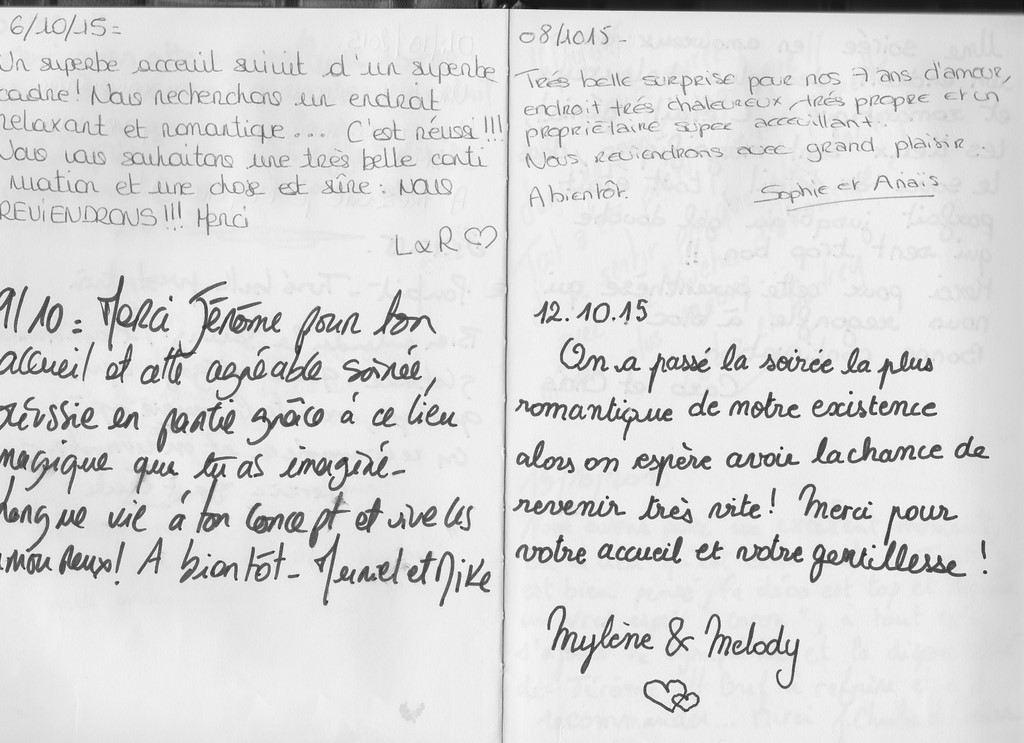 6/10/15=
Un superbe acceuil suivit d'un superbe
cadre! Nous recherchons un endroit
relaxant et romantique... C'est réussi!!!
Nous vous souhaitons une très belle conti
nuation et une chose est sûre: NOUS
REVIENDRONS!!! Merci
L&R ♡
9/10: Merci Jérôme pour ton
accueil et cette agréable soirée,
réussie en partie grâce à ce lieu
magique que tu as imaginé-
Longue vie à ton concept et vive les
amoureux! A bientôt- Muriel et Mike
08/1015-
Trés belle surprise pour nos 7 ans d'amour,
endroit trés chaleureux, trés propre et un
propriétaire super acceuillant.
Nous reviendrons avec grand plaisir.
A bientôt. Sophie et Anaïs
12.10.15
On a passé la soirée la plus
romantique de notre existence
alors on espère avoir la chance de
revenir très vite! Merci pour
votre accueil et votre gentillesse!
Mylène & Melody